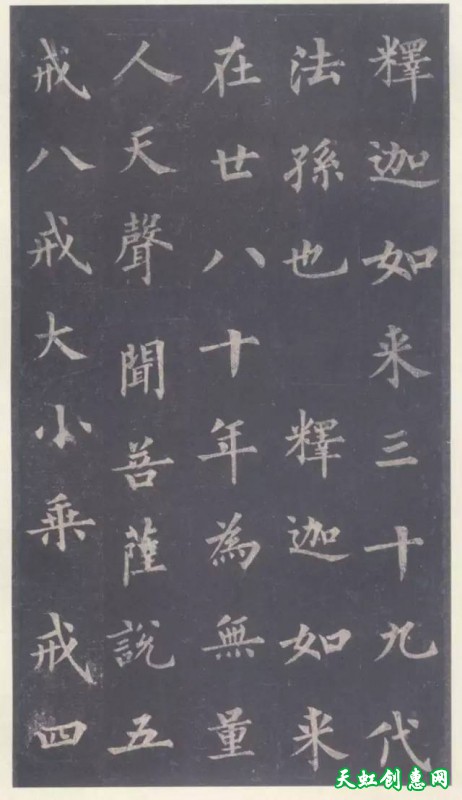 釋迦如来三十九代
法孫也 釋迦如来
在廿八十年為無量
人天聲聞菩薩說五
戒八戒大小乘戒四
天虹创惠网